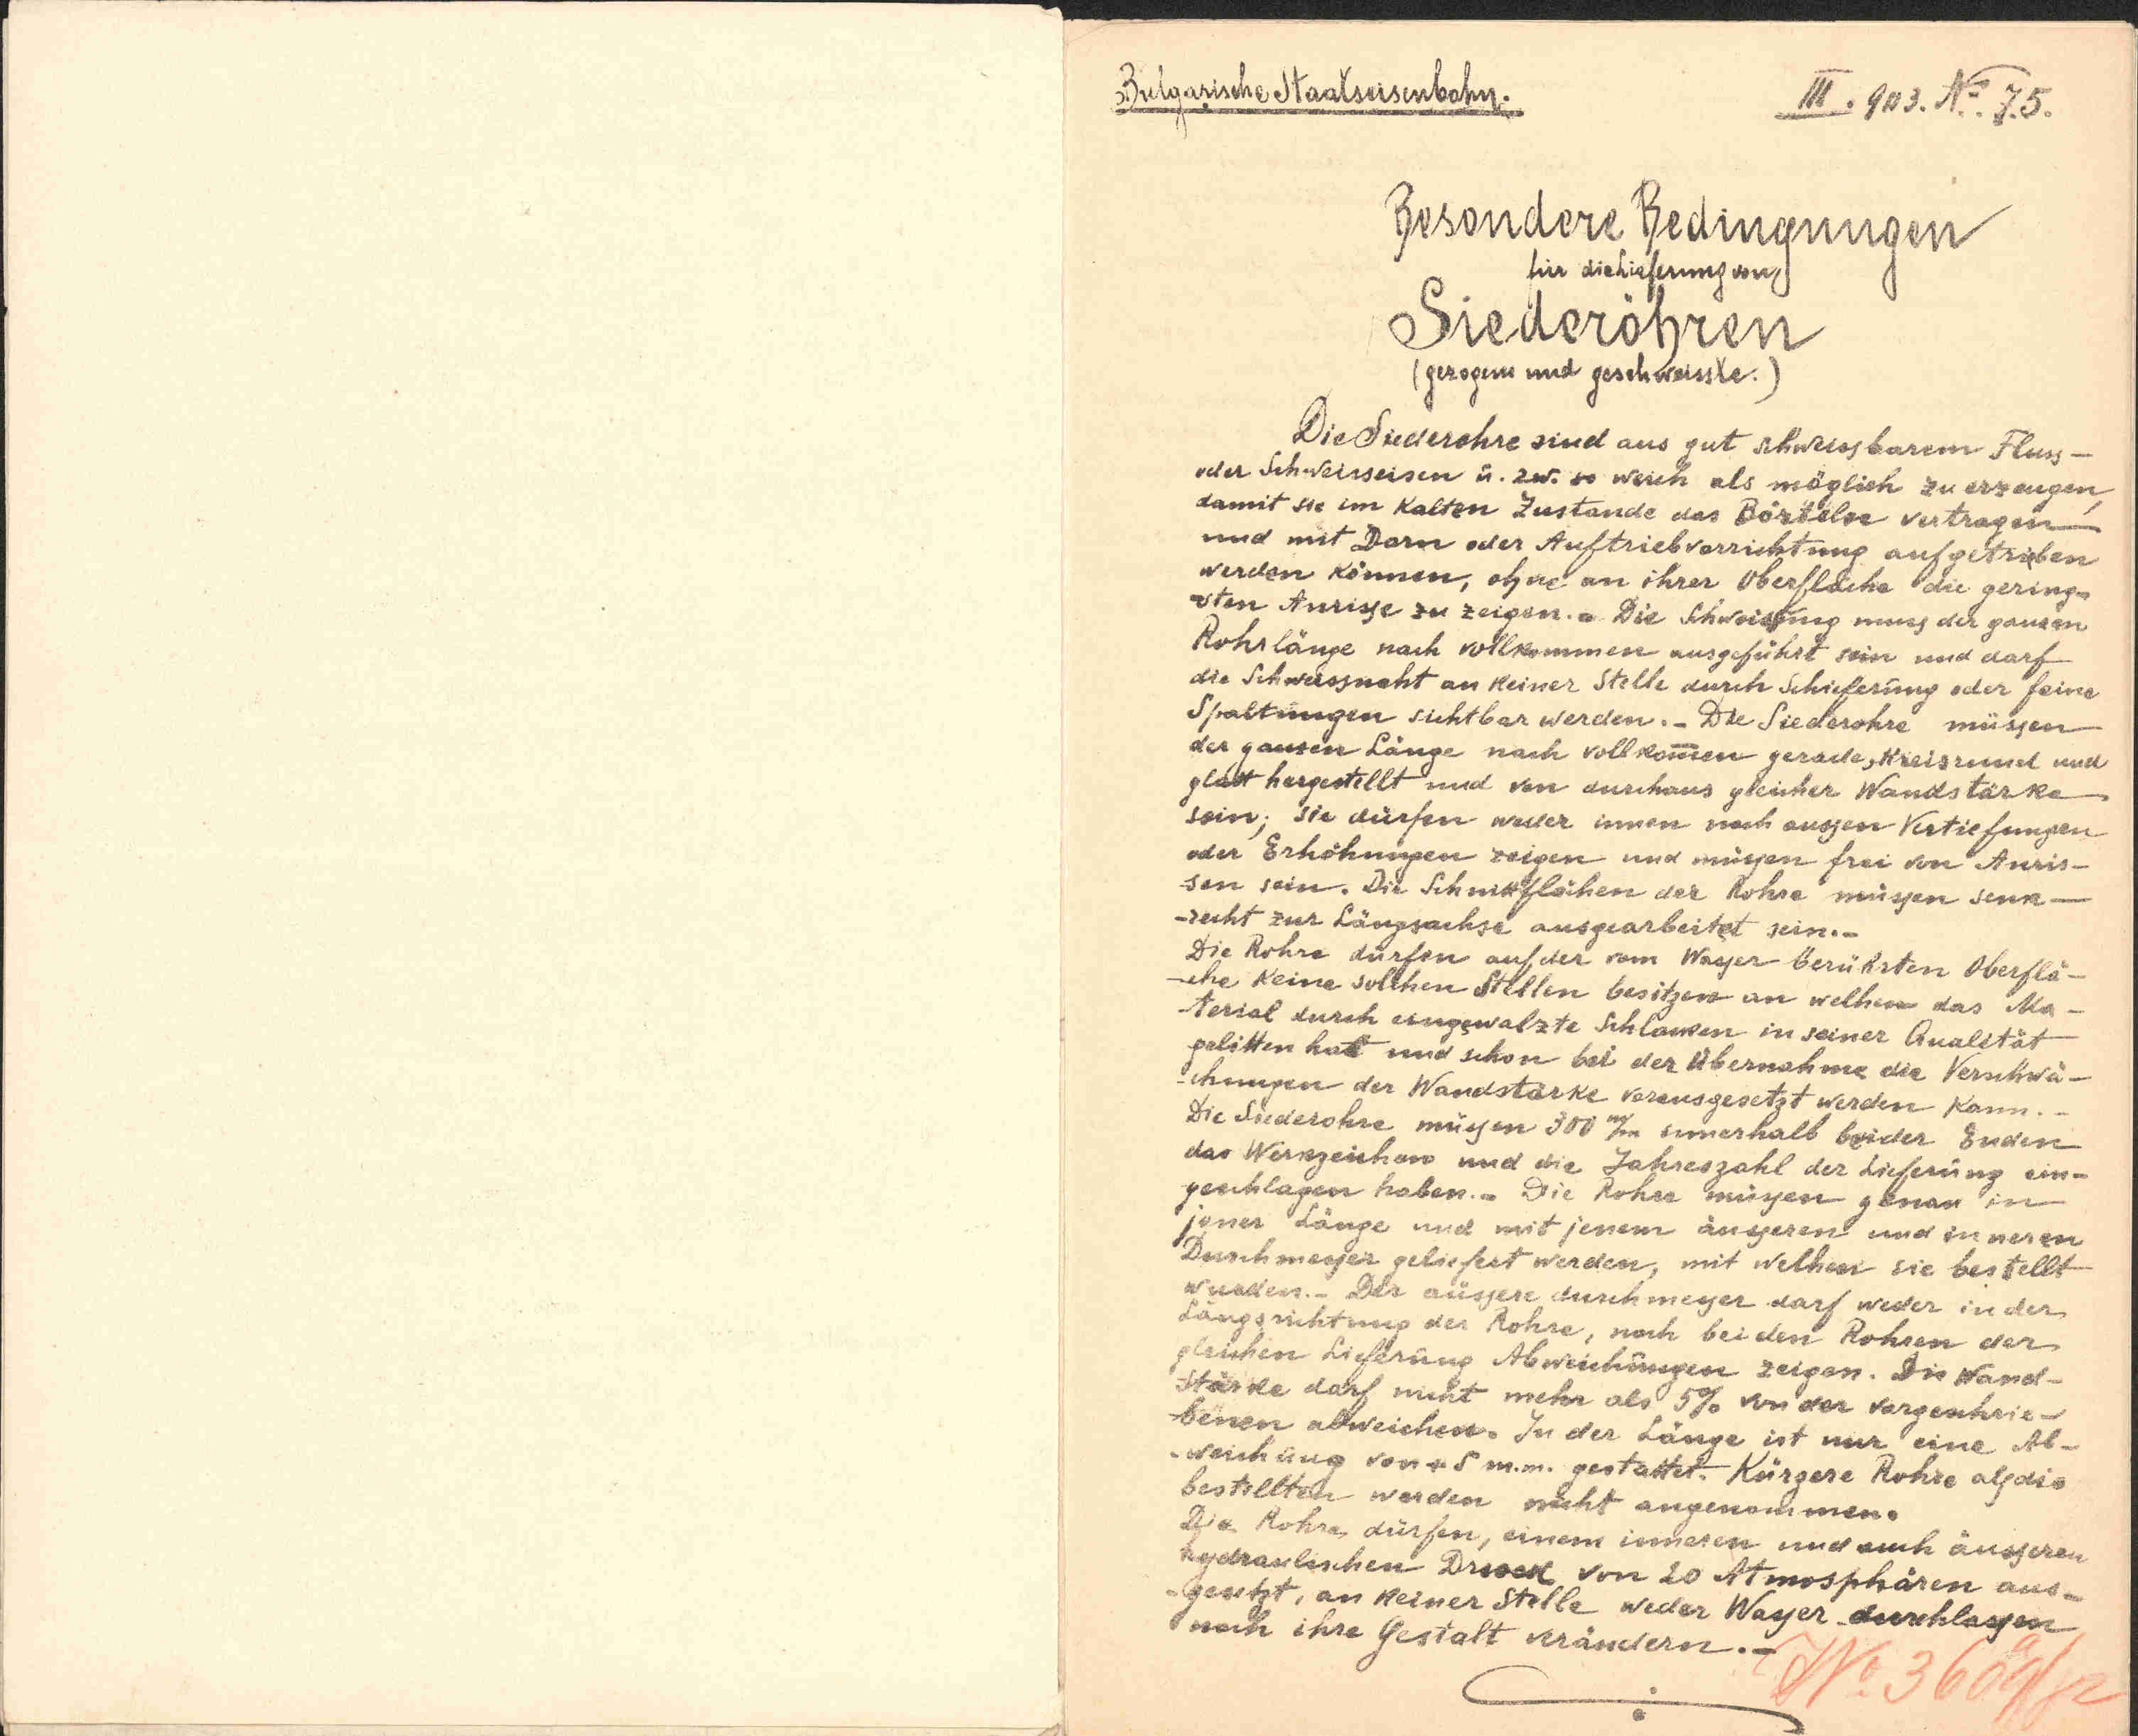 Bulgarische Staatseisenbahn.
III. 903. No. 75.
Besondere Bedingungen
für die Lieferung von
Siederöhren
(gezogene und geschweisste.)
Die Siederohre sind aus gut schweissbarem Fluss-
oder Schweisseisen u. zw. so weich als möglich zu erzeugen,
damit sie im kalten Zustande das Börteln vertragen
und mit Dorn oder Auftriebvorrichtung aufgetrieben
werden können, ohne an ihrer Oberfläche die gering-
sten Anrisse zu zeigen.- Die Schweissung muss der ganzen
Rohrlänge nach vollkommen ausgeführt sein und darf
die Schweissnaht an keiner Stelle durch Schieferung oder feine
Spaltungen sichtbar werden.- Die Siederohre müssen
der ganzen Länge nach vollkom̅en gerade, kreisrund und
glatt hergestellt und von durchaus gleicher Wandstärke
sein; sie dürfen weder innen noch aussen Vertiefungen
oder Erhöhungen zeigen und müssen frei von Anris-
sen sein. Die Schnittflächen der Rohre müssen senk-
-recht zur Längsachse ausgearbeitet sein.-
Die Rohre dürfen auf der vom Wasser berührten Oberflä-
-che keine solchen Stellen besitzen an welhen das Ma-
-terial durch eingewalzte Schlacken in seiner Qualität
gelitten hat und schon bei der Übernahme die Verschwä-
-chungen der Wandstärke vorausgesetzt werden kann.-
Die Siederohre müssen 300 m/m innerhalb beider Enden
das Werkzeichen und die Jahreszahl der Lieferung ein-
geschlagen haben.- Die Rohre müssen genau in
jener Länge und mit jenem äusseren und inneren
Durchmesser geliefert werden, mit welhen sie bestellt
wurden.- Der äussere durchmesser darf weder in der
Längsrichtung der Rohre, noch bei den Rohren der
gleichen Lieferung Abweichungen zeigen. Die Wand-
stärke darf nicht mehr als 5% von der vorgeschrie-
-benen abweichen. In der Länge ist nur eine Ab-
-weichung von + 5 m.m. gestattet. Kürzere Rohre als die
bestellten werden nicht angenommen.
Die Rohre dürfen, einem inneren und auch äusseren
hydraulischen Druck von 20 Atmosphären aus-
-gesetzt, an keiner Stelle weder Wasser durchlassen
noch ihre Gestalt verändern.-